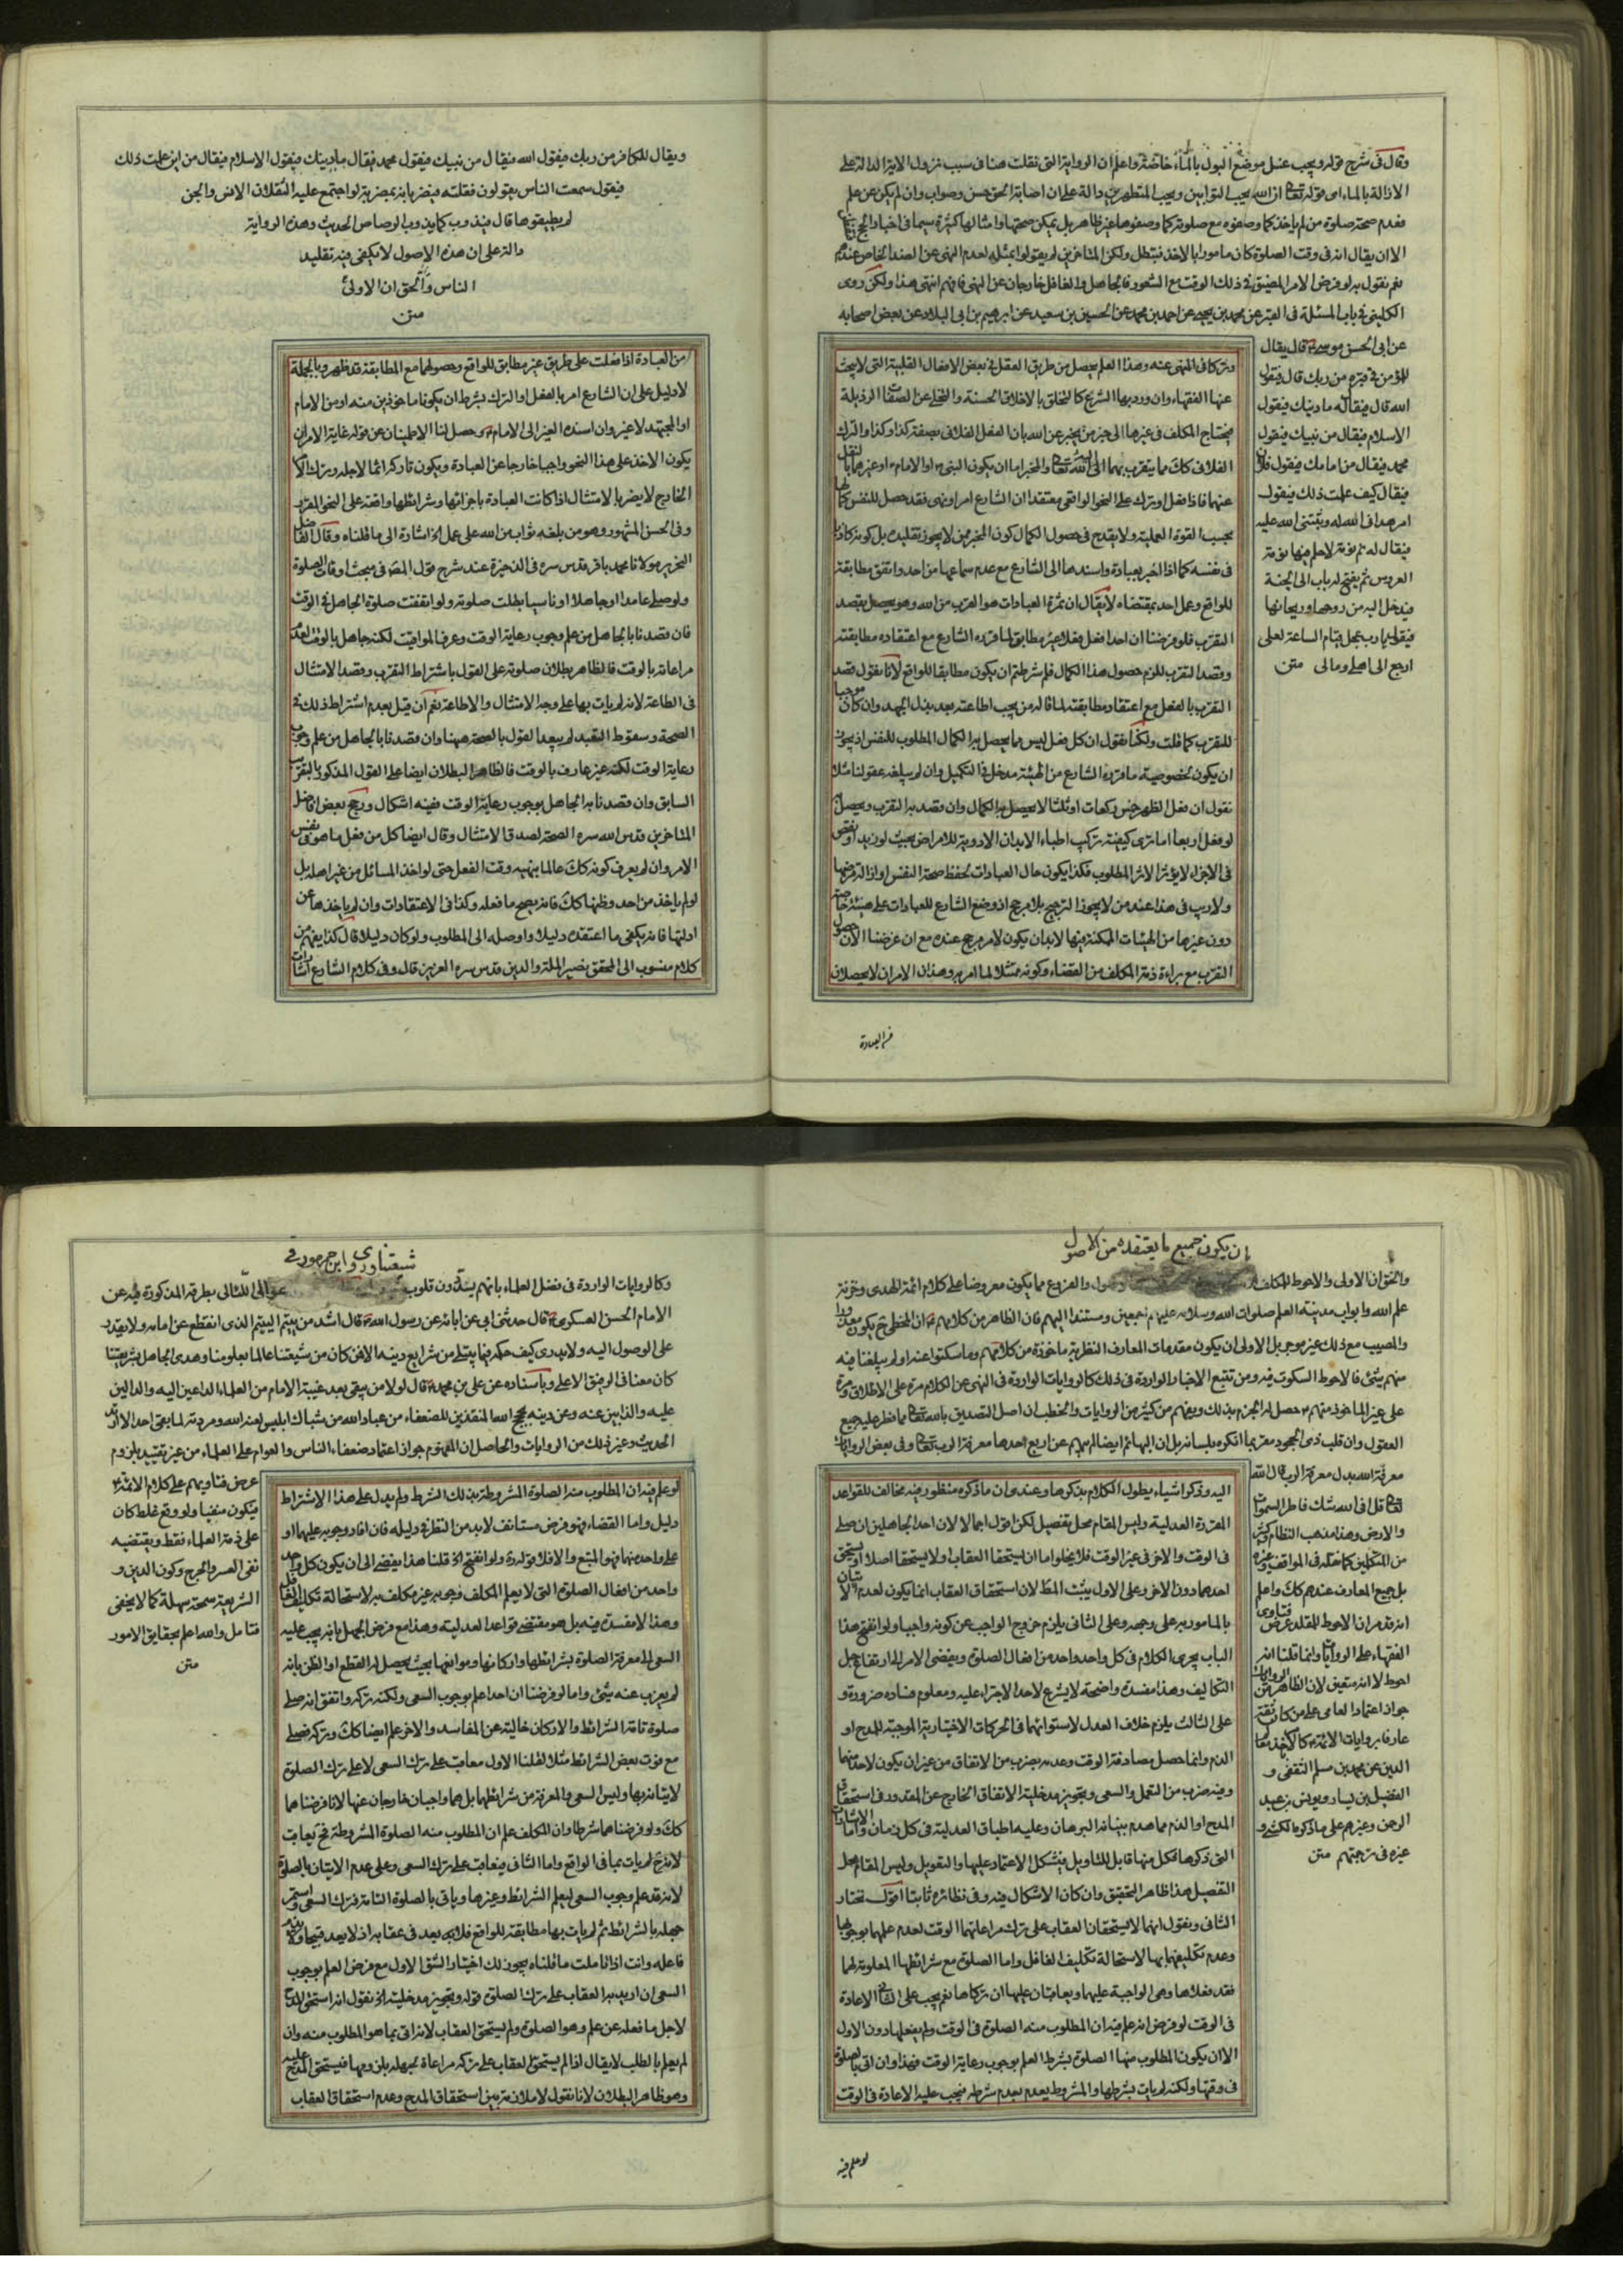 وقال في شرح قوله ويجب غسل موضع البول بالماء خاصة واعلم ان الرواية التي نقلت هنا في سبب نزول الاية الدالة على
الازالة بالماء اى قوله تعالى ان الله يحب التوابين ويحب المتطهرين دالة على ان اصابة الحق حسن وصواب وان لم يكن عن علم
فعدم صحة صلوة من لم ياخذ كما وصفوه مع صلوته كما وصفوها غير ظاهر بل يمكن صحتها وامثالها كثيرة سيما في اخبار الحج
الا ان يقال انه في وقت الصلوة كان مامورا بالاخذ فتبطل ولكن المتاخرين لم يقولوا بمثله لعدم النهى عن الضد الخاص عندهم
نعم نقول به لو فرض الامر المضيق في ذلك الوقت مع الشعور فالجاهل والغافل خارجان عن النهى فافهم انتهى هذا ولكن روى
الكليني في باب المسئلة في القبر عن محمد بن يحيى عن احمد بن محمد عن الحسين بن سعيد عن ابرهيم بن ابى البلاد عن بعض اصحابه
عن ابى الحسن موسى قال يقال
للمؤمن في قبره من ربك قال فيقول
الله قال فيقال له ما دينك فيقول
الاسلام فيقال من نبيك فيقول
محمد فيقال من امامك فيقول فلان
فيقال كيف علمت ذلك فيقول
امر هدانى الله له وثبتنى الله عليه
فيقال له نم نومة لا حلم فيها نومة
العروس ثم يفتح له باب الى الجنة
فيدخل اليه من روحها وريحانها
فيقول يا رب عجل قيام الساعة لعلى
ارجع الى اهلى ومالى منه
وتركا في المنهى عنه وهذا العلم يحصل من طريق العقل في بعض الافعال القلبية التى لا يبحث
عنها الفقهاء وان ورد بها الشرع كالتخلق بالاخلاق الحسنة والتخلى عن الصفات الرذيلة
فيحتاج المكلف في غيرها الى خبر من يخبر عن الله بان الفعل الفلانى بصفة كذا وكذا والترك
الفلانى كك مما يتقرب بهما الى الله تعالى والمخبر اما ان يكون النبى او الامام او غيرهما بالنقل
عنهما فاذا فعل او ترك على النحو الواقعى معتقدا ان الشارع امر او نهى فقد حصل للنفس كمالها
بحسب القوة العملية ولا يقدح في حصول الكمال كون المخبر ممن لا يجوز تقليده بل كونه كاذبا
في نفسه كما اذا اخبر بعبادة واسندها الى الشارع مع عدم سماعها من احد واتفق مطابقته
للواقع وعمل احد بمقتضاه لا يقال ان ثمرة العبادات هو القرب من الله وهو يحصل بقصد
التقرب فلو فرضنا ان احدا فعل فعلا غير مطابق لما قرره الشارع مع اعتقاده مطابقته
وقصد التقرب للزم حصول هذا الكمال فلم شرطتم ان يكون مطابقا للواقع لانا نقول قصد
التقرب بالفعل مع اعتقاد مطابقته لما قاله من يجب اطاعته بعد بذل الجهد وان كان موجبا
للتقرب كما قلت ولكنا نقول ان كل فعل ليس مما يحصل به الكمال المطلوب للنفس اذ يجوز
ان يكون لخصوصية ما قرره الشارع من الهيئة مدخل في التكميل وان لم يبلغه عقولنا مثلا
نقول ان فعل الظهر خمس ركعات او ثلثا لا يحصل به الكمال وان قصد به التقرب ويحصل
لو فعل اربعا اما ترى كيفية تركيب اطباء الابدان الادوية للامراض بحيث لو زيد او نقص
في الاجزاء لا يؤثر الاثر المطلوب فكذا يكون حال العبادات لحفظ صحة النفس او ازالة مرضها
ولا ريب في هذا عند من لا يجوز الترجيح بلا مرجح اذ وضع الشارع للعبادات على هيئة خاصة
دون غيرها من الهيئات الممكنة فيها لا بد ان يكون لامر مرجح عنده مع ان غرضنا الان حصول
التقرب مع براءة ذمة المكلف من القضاء وكونه ممتثلا لما امر به وهذان الامران لا يحصلان
من العبادة
ويقال للكافر من ربك فيقول الله فيقال من نبيك فيقول محمد فيقال ما دينك فيقول الاسلام فيقال من اين علمت ذلك
فيقول سمعت الناس يقولون فقلته فيضربانه بمضربة لو اجتمع عليه الثقلان الانس والجن
لم يطيقوها قال فيذوب كما يذوب الرصاص الحديث وهذه الرواية
دالة على ان هذه الاصول لا يكفى فيه تقليد
الناس والحق ان الاولى
منه
من العبادة اذا فعلت على طريق غير مطابق للواقع وحصولهما مع المطابقة قد ظهر وبالجملة
لا دليل على ان الشارع امر بالفعل والترك بشرط ان يكونا ماخوذين منه او من الامام
او المجتهد لا غير وان اسنده الغير الى الامام وحصل لنا الاطمينان عن قوله غاية الامر ان
يكون الاخذ على هذا النحو واجبا خارجا عن العبادة ويكون تاركه اثما لاجله وترك الامر
الخارج لا يضر بالامتثال اذا كانت العبادة باجزائها وشرائطها واقعة على النحو المقرر
وفى الحسن المشهور وهو من بلغه ثواب من الله على عمل الخ اشارة الى ما قلناه وقال الفاضل
النحرير مولانا محمد باقر قدس سره في الذخيرة عند شرح قول المصنف في مبحث اوقات الصلوة
ولو صلى عامدا او جاهلا او ناسيا بطلت صلوته ولو اتفقت صلوة الجاهل في الوقت
فان قصدنا بالجاهل من علم وجوب رعاية الوقت وعرف المواقيت لكنه جاهل بالوقت لعدم
مراعاته بالوقت فالظاهر بطلان صلوته على القول باشتراط التقرب وقصد الامتثال
في الطاعة لانه لم يات بها على وجه الامتثال والاطاعة نعم ان قيل بعدم اشتراط ذلك في
الصحة وسقوط التعبد لم يبعد القول بالصحة ههنا وان قصدنا بالجاهل من علم وجوب
رعاية الوقت لكنه غير عارف بالوقت فالظاهر البطلان ايضا على القول المذكور بالتقريب
السابق وان قصدنا به الجاهل بوجوب رعاية الوقت ففيه اشكال ورجح بعض افاضل
المتاخرين قدس الله سره الصحة لصدق الامتثال وقال ايضا كل من فعل ما هو في نفس
الامر وان لم يعرف كونه كك عالما بنهيه وقت الفعل حتى لو اخذ المسائل من غير اهله بل
لو لم ياخذ من احد وظنها كك فانه يصح ما فعله وكذا في الاعتقادات وان لم ياخذها عن
ادلتها فانه يكفى ما اعتقده دليلا واوصله الى المطلوب ولو كان دليلا قال كذا يفهم من
كلام منسوب الى المحقق نصير الملة والدين قدس سره العزيز قال وفى كلام الشارع اشارات
ان يكون جميع ما يعتقده من الاصول
والحق ان الاولى والاحوط للمكلف والفروع مما يكون معروضا على كلام ائمة الهدى وخزنة
علم الله وابواب مدينة العلم صلوات الله وسلامه عليهم اجمعين ومستندا اليهم فان الظاهر من كلامهم ان المخطى ح يكون معذورا
والمصيب مع ذلك غير موجر بل الاولى ان يكون مقدمات المعارف النظرية ماخوذة من كلامهم وما سكتوا عنه او لم يبلغنا فيه
منهم شئ فالاحوط السكوت فيه ومن تتبع الاخبار الواردة في ذلك كالروايات الواردة في النهى عن الكلام مرة على الاطلاق ومرة
على غير الماخوذ منهم حصل له الجزم بذلك ويفهم من كثير من الروايات والخطب ان اصل التصديق بالله تعالى مما فطر عليه جميع
العقول وان قلب ذى الجحود مقر بما انكره بلسانه بل ان البهائم ايضا لم يبهم عن اربع احدها معرفة الرب تعالى وفى بعض الروايات
معرفة الله بدل معرفة الرب قال الله
تعالى قل افى الله شك فاطر السموات
والارض وهذا مذهب النظام وكثير
من المتكلمين كما نقله في المواقف وغيره
بل جميع المعارف عندهم كك واعلم
انه قد مر ان الاحوط للمقلد عرض فتاوى
الفقهاء على الروايات وانما قلنا انه
احوط لا انه متعين لان الظاهر من الروايات
جواز اعتماد العامى على من كان ثقة
عارفا بروايات الائمة كالاخذ لمعالم
الدين عن محمد بن مسلم الثقفى و
الفضيل بن يسار ويونس بن عبد
الرحمن وغيرهم على ما ذكره الكشى و
غيره في ترجمتهم منه
اليه وذكر اشياء يطول الكلام بذكرها وعندى ان ما ذكره منظور فيه مخالف للقواعد
المقررة العدلية وليس المقام محل تفصيل لكن اقول اجمالا لان احد الجاهلين ان صلى
في الوقت والاخر في غير الوقت فلا يخلو اما ان يستحقا العقاب ولا يستحقا اصلا او يستحق
احدهما دون الاخر وعلى الاول يثبت المط لان استحقاق العقاب انما يكون لعدم الاتيان
بالمامور به على وجهه وعلى الثانى يلزم خروج الواجب عن كونه واجبا ولو انفتح هذا
الباب يجرى الكلام في كل واحد واحد من افعال الصلوة ويفضى الامر الى ارتفاع جل
التكاليف وهذا مفسدة واضحة لا يشرع لاحد الاجتراء عليه ومعلوم فساده ضرورة و
على الثالث يلزم خلاف العدل لاستوائهما في الحركات الاختيارية الموجبة للمدح او
الذم وانما حصل مصادفة الوقت وعدمه بضرب من الاتفاق من غير ان يكون لاحد منهما
وفيه ضرب من التعمل والسعى وتجويز مدخلية الاتفاق الخارج عن المقدور في استحقاق
المدح او الذم مما هدم بنيانه البرهان وعليه اطباق العدلية في كل زمان واما الاشارات
التى ذكرها فكل منها قابل للتاويل فيشكل الاعتماد عليها والتعويل وليس المقام محل
التفصيل هذا ظاهر التحقيق وان كان الاشكال فيه وفى نظائره ثابتا اقول نختار
الثانى ونقول انهما لا يستحقان العقاب على ترك مراعاتهما الوقت لعدم علمهما بوجوبها
وعدم تكليفهما بها لاستحالة تكليف الغافل واما الصلوة مع شرائطها المعلومة لهما
فقد فعلاها وهى الواجبة عليهما ويعاقبان عليها ان تركاها نعم يجب على الثانى الاعادة
في الوقت لو فرض انه علم فيه ان المطلوب منه الصلوة في الوقت ولم يفعلها دون الاول
الا ان يكون المطلوب منها الصلوة بشرط العلم بوجوب رعاية الوقت فهذا وان اتى بالصلوة
في وقتها ولكنه لم يات بشرطها والمشروط يعدم بعدم شرطه فيجب عليه الاعادة في الوقت
لو علم فيه
شيعتنا وروى ابن جمهور في
وكالروايات الواردة في فضل العلماء بانهم يسددون قلوب غوالى اللئالى بطرقه المذكورة فيه عن
الامام الحسن العسكرى قال حدثنى ابى عن ابائه عن رسول الله قال اشد من يتم اليتيم الذى انقطع عن امامه ولا يقدر
على الوصول اليه ولا يدرى كيف حكمه فيما يبتلى من شرايع دينه الا فمن كان من شيعتنا عالما بعلومنا وهدى الجاهل بشريعتنا
كان معنا في الرفيق الاعلى وباسناده عن على بن محمد قال لولا من يبقى بعد غيبة الامام من العلماء الداعين اليه والدالين
عليه والذابين عنه وعن دينه بحجج الله المنقذين للضعفاء من عباد الله من شباك ابليس لعنه الله ومردته لما بقى احد الا ارتد
الحديث وغير ذلك من الروايات والحاصل ان المفهوم جواز اعتماد ضعفاء الناس والعوام على العلماء من غير تقييد بلزوم
عرض فتاويهم على كلام الائمة
فيكون منفيا ولو وقع غلط كان
على ذمة العلماء فقط ويقتضيه
نفى العسر والحرج وكون الدين و
الشريعة سمحة سهلة كما لا يخفى
فتامل والله اعلم بحقايق الامور
منه
لو علم فيه ان المطلوب منه الصلوة المشروطة بذلك الشرط ولم يدل على هذا الاشتراط
دليل واما القضاء فهو فرض مستانف لا بد من النظر في دليله فان افاد وجوبه عليهما او
على واحد منهما فهو المتبع والا فلا قوله ولو انفتح الخ قلنا هذا يفضى الى ان يكون كل واحد
واحد من افعال الصلوة التى لا يعلم المكلف وجوبه غير مكلف به لاستحالة تكليف الغافل
وهذا لا مفسدة فيه بل هو مقتضى قواعد العدلية وهذا مع فرض الجهل بانه يجب عليه
السعى الى معرفة الصلوة بشرائطها واركانها وموانعها بحيث يحصل له القطع او الظن بانه
لم يعزب عنه شئ واما لو فرضنا ان احدا علم بوجوب السعى ولكنه تركه واتفق انه صلى
صلوة تامة الشرائط والاركان خالية عن المفاسد والاخر علم ايضا كك وتركه فصلى
مع فوت بعض الشرائط مثلا لقلنا الاول معاقب على ترك السعى لا على ترك الصلوة
لاتيانه بها وليس السعى والمعرفة من شرائطها بل هما واجبان خارجان عنها لانا فرضناهما
كك ولو فرضناهما شرطا وان المكلف علم ان المطلوب منه الصلوة المشروطة فح يعاقب
لانه ح لم يات بما في الواقع واما الثانى فيعاقب على ترك السعى وعلى عدم الاتيان بالصلوة
لانه قد علم وجوب السعى ليعلم الشرائط وغيرها وياتى بالصلوة التامة فترك السعى واستمر
جهله بالشرائط ثم لم يات بها مطابقة للواقع فلا بعد في عقابه اذ لا يعد قبيحا ويذم
فاعله وانت اذا تاملت ما قلناه يجوز لك اختيار الشق الاول مع فرض العلم بوجوب
السعى ان اريد به العقاب على ترك الصلوة قوله وتجويز مدخلية الخ نقول انه استحق المدح
لاجل ما فعله عن علم وهو الصلوة ولم يستحق العقاب لانه اتى بما هو المطلوب منه وان
لم يعلم بالطلب لا يقال اذا لم يستحق العقاب على تركه مراعاة لجهله بلزومها فيستحق المدح عليه
وهو ظاهر البطلان لانا نقول لا ملازمة بين استحقاق المدح وعدم استحقاق العقاب